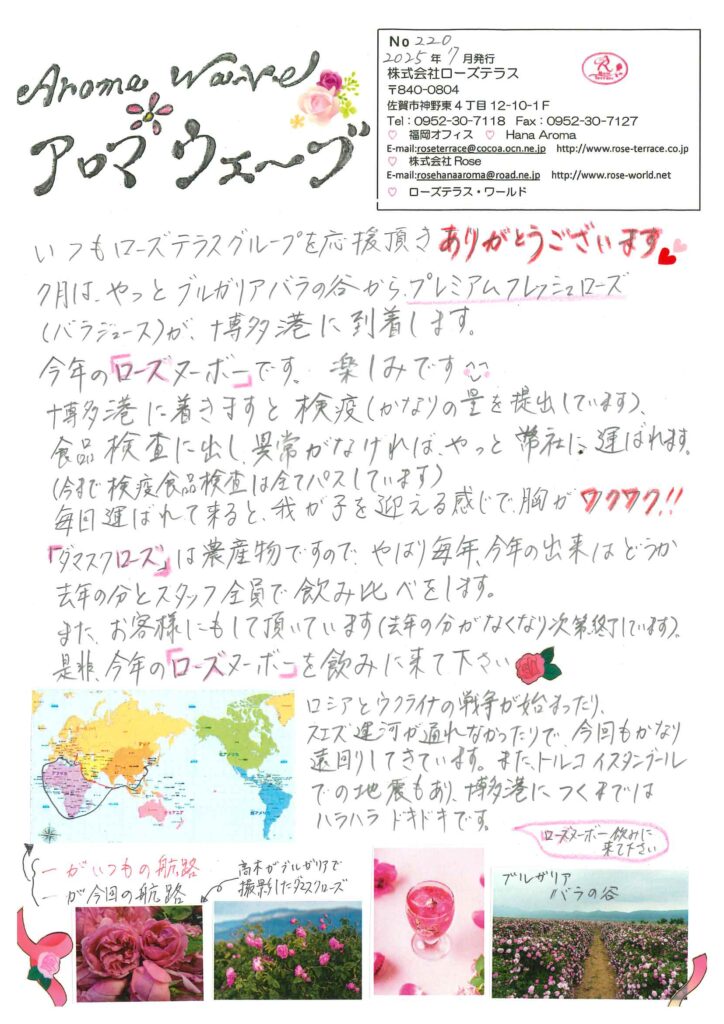 Arome Wave
アロマウェーブ
No 220
2025年7月発行
株式会社ローズテラス
〒840-0804
佐賀市神野東4丁目12-10-1F
Tel：0952-30-7118 Fax：0952-30-7127
♡ 福岡オフィス ♡ Hana Aroma
E-mail:roseterrace@cocoa.ocn.ne.jp http://www.rose-terrace.co.jp
♡ 株式会社Rose
E-mail:rosehanaaroma@road.ne.jp http://www.rose-world.net
♡ ローズテラス・ワールド
いつもローズテラスグループを応援頂きありがとうございます
7月は、やっとブルガリアバラの谷から、プレミアムフレッシュローズ
(バラジュース)が、博多港に到着します。
今年の「ローズヌーボー」です。楽しみです
博多港に着きますと検疫(かなりの量を提出しています)、
食品検査に出し、異常がなければ、やっと弊社に運ばれます。
(今まで検疫、食品検査は全てパスしています)
毎日運ばれて来ると、我が子を迎える感じで、胸がワクワク!!
「ダマスクローズ」は農産物ですので、やはり毎年、今年の出来はどうか
去年の分とスタッフ全員で飲み比べをします。
また、お客様にもして頂いています(去年の分がなくなり次第終了しています)。
是非、今年の「ローズヌーボー」を飲みに来て下さい
ロシアとウクライナの戦争が始まったり、
スエズ運河が通れなかったりで、今回もかなり
遠回りしてきています。また、トルコイスタンブール
での地震もあり、博多港につくまでは
ハラハラドキドキです。
ローズヌーボー飲みに
来て下さい
ーがいつもの航路
ーが今回の航路
高木がブルガリアで
撮影したダマスクローズ
ブルガリア
バラの谷